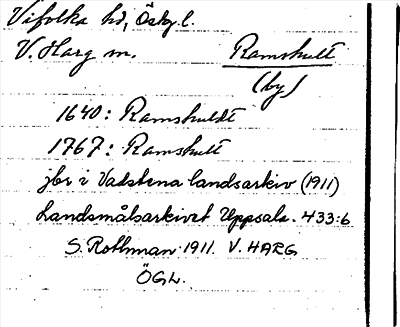 Vifolka hd, Ösby l.
V. Harg sn. Ramshult
(by)
1640: Ramshuldt
1767: Ramshult
jbr i Vadstena landsarkiv (1911)
Landsmålsarkivet Uppsala. 433:6
S. Rothman 1911. V. HARG
ÖGL.